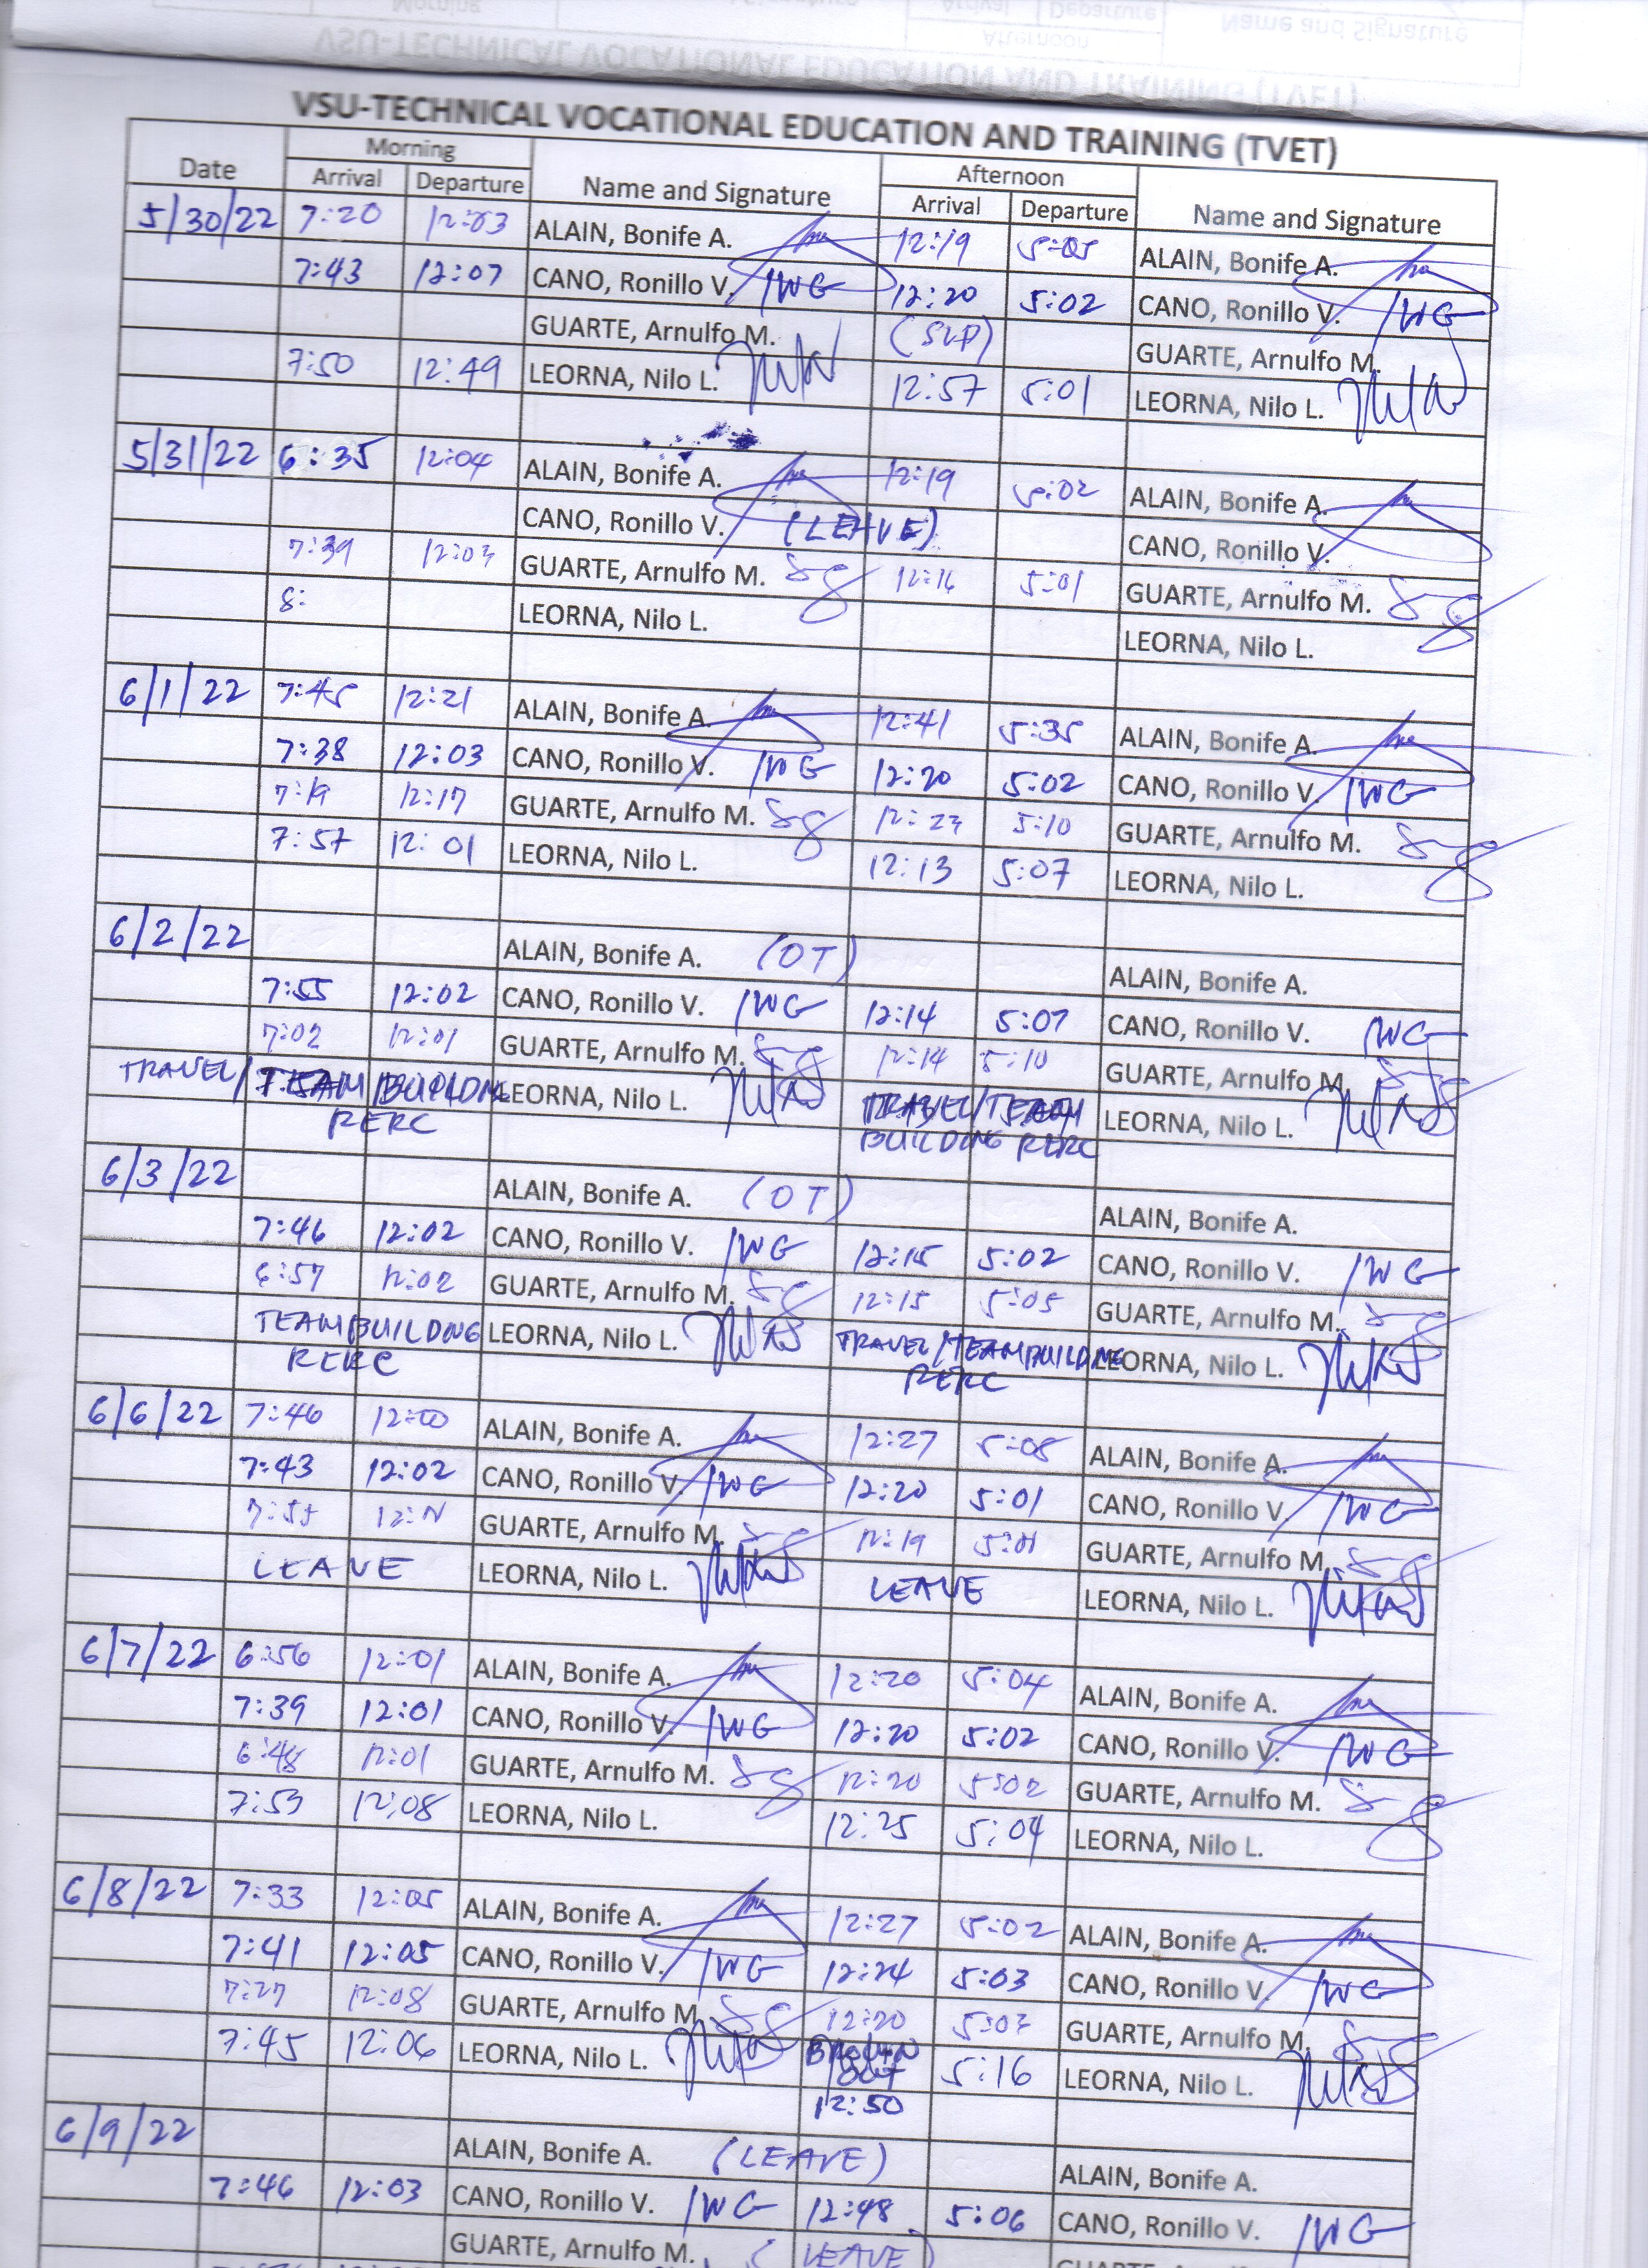 VSU-TECHNICAL VOCATIONAL EDUCATION AND TRAINING (TVET)
Date Morning Name and Signature Afternoon Name and Signature
Arrival Departure Arrival Departure
5/30/22 7:20 12:03 ALAIN, Bonife A. 12:19 5:05 ALAIN, Bonife A.
7:43 12:07 CANO, Ronillo V. 12:20 5:02 CANO, Ronillo V.
GUARTE, Arnulfo M. (SLP) GUARTE, Arnulfo M.
7:50 12:49 LEORNA, Nilo L. 12:57 5:01 LEORNA, Nilo L.
5/31/22 6:35 12:04 ALAIN, Bonife A. 12:19 5:02 ALAIN, Bonife A.
CANO, Ronillo V. (LEAVE) CANO, Ronillo V.
7:39 12:03 GUARTE, Arnulfo M. 12:16 5:01 GUARTE, Arnulfo M.
8: LEORNA, Nilo L. LEORNA, Nilo L.
6/1/22 7:45 12:21 ALAIN, Bonife A. 12:41 5:35 ALAIN, Bonife A.
7:38 12:03 CANO, Ronillo V. 12:20 5:02 CANO, Ronillo V.
7:19 12:17 GUARTE, Arnulfo M. 12:23 5:10 GUARTE, Arnulfo M.
7:57 12:01 LEORNA, Nilo L. 12:13 5:07 LEORNA, Nilo L.
6/2/22 ALAIN, Bonife A. (OT) ALAIN, Bonife A.
7:55 12:02 CANO, Ronillo V. 12:14 5:07 CANO, Ronillo V.
7:02 12:01 GUARTE, Arnulfo M. 12:14 5:10 GUARTE, Arnulfo M.
TRAVEL/TEAM BUILDING LEORNA, Nilo L. TRAVEL/TEAM LEORNA, Nilo L.
RERC BUILDING RERC
6/3/22 ALAIN, Bonife A. (OT) ALAIN, Bonife A.
7:46 12:02 CANO, Ronillo V. 12:15 5:02 CANO, Ronillo V.
6:57 12:02 GUARTE, Arnulfo M. 12:15 5:05 GUARTE, Arnulfo M.
TEAMBUILDING LEORNA, Nilo L. TRAVEL/TEAMBUILDING LEORNA, Nilo L.
RERC RERC
6/6/22 7:46 12:00 ALAIN, Bonife A. 12:27 5:08 ALAIN, Bonife A.
7:43 12:02 CANO, Ronillo V. 12:20 5:01 CANO, Ronillo V.
7:55 12:N GUARTE, Arnulfo M. 12:19 5:01 GUARTE, Arnulfo M.
LEAVE LEORNA, Nilo L. LEAVE LEORNA, Nilo L.
6/7/22 6:56 12:01 ALAIN, Bonife A. 12:20 5:04 ALAIN, Bonife A.
7:39 12:01 CANO, Ronillo V. 12:20 5:02 CANO, Ronillo V.
6:48 12:01 GUARTE, Arnulfo M. 12:20 5:02 GUARTE, Arnulfo M.
7:53 12:08 LEORNA, Nilo L. 12:25 5:04 LEORNA, Nilo L.
6/8/22 7:33 12:05 ALAIN, Bonife A. 12:27 5:02 ALAIN, Bonife A.
7:41 12:05 CANO, Ronillo V. 12:24 5:03 CANO, Ronillo V.
7:27 12:08 GUARTE, Arnulfo M. 12:20 5:03 GUARTE, Arnulfo M.
7:45 12:06 LEORNA, Nilo L. BROWN OUT 5:16 LEORNA, Nilo L.
12:50
6/9/22 ALAIN, Bonife A. (LEAVE) ALAIN, Bonife A.
7:46 12:03 CANO, Ronillo V. 12:48 5:06 CANO, Ronillo V.
GUARTE, Arnulfo M. (LEAVE)